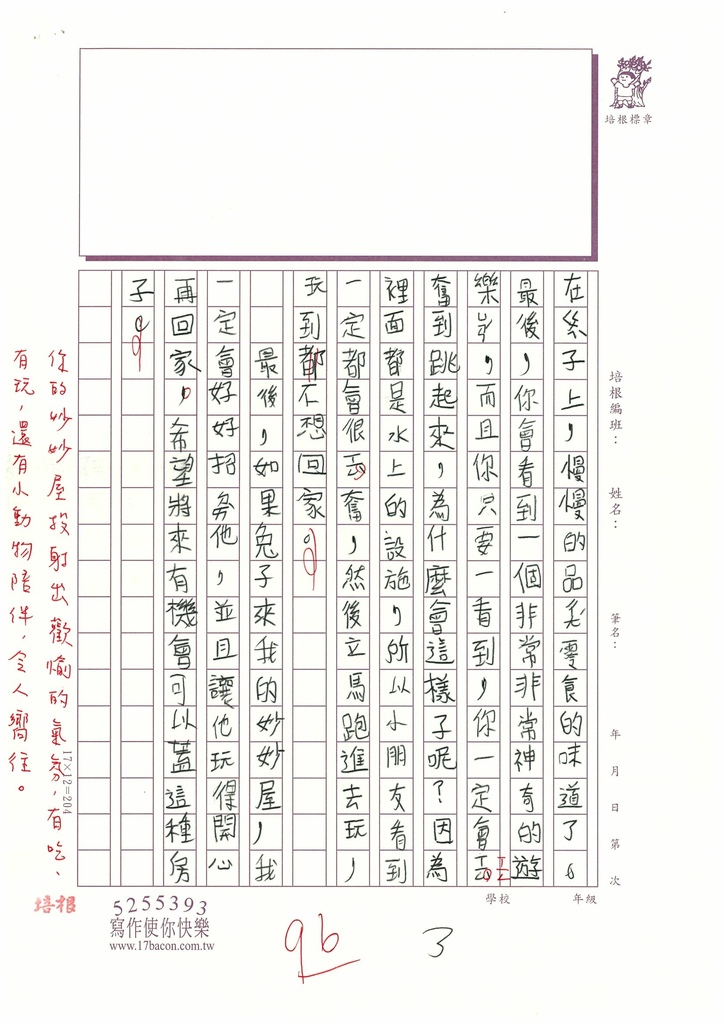 培根標章
培根編班：
姓名：
筆名：
年 月 日 第 次
在桌子上，慢慢的品嘗零食的味道了。
最後，你會看到一個非常非常神奇的遊
樂園，而且你只要一看到，你一定會
奮到跳起來，為什麼會這樣子呢？因為
裡面都是水上的設施，所以小朋友看到
一定都會很奮，然後立馬跑進去玩，
玩到都不想回家。
最後，如果兔子來我的妙妙屋，我
一定會好好招務他，並且讓他玩得開心
再回家，希望將來有機會可以蓋這種房
子。
你的妙妙屋投射出歡愉的氣氛，有吃、
有玩，還有小動物陪伴，令人嚮往。
17×12=204
學校
年級
培根
5255393
寫作使你快樂
www.17bacon.com.tw
96
3